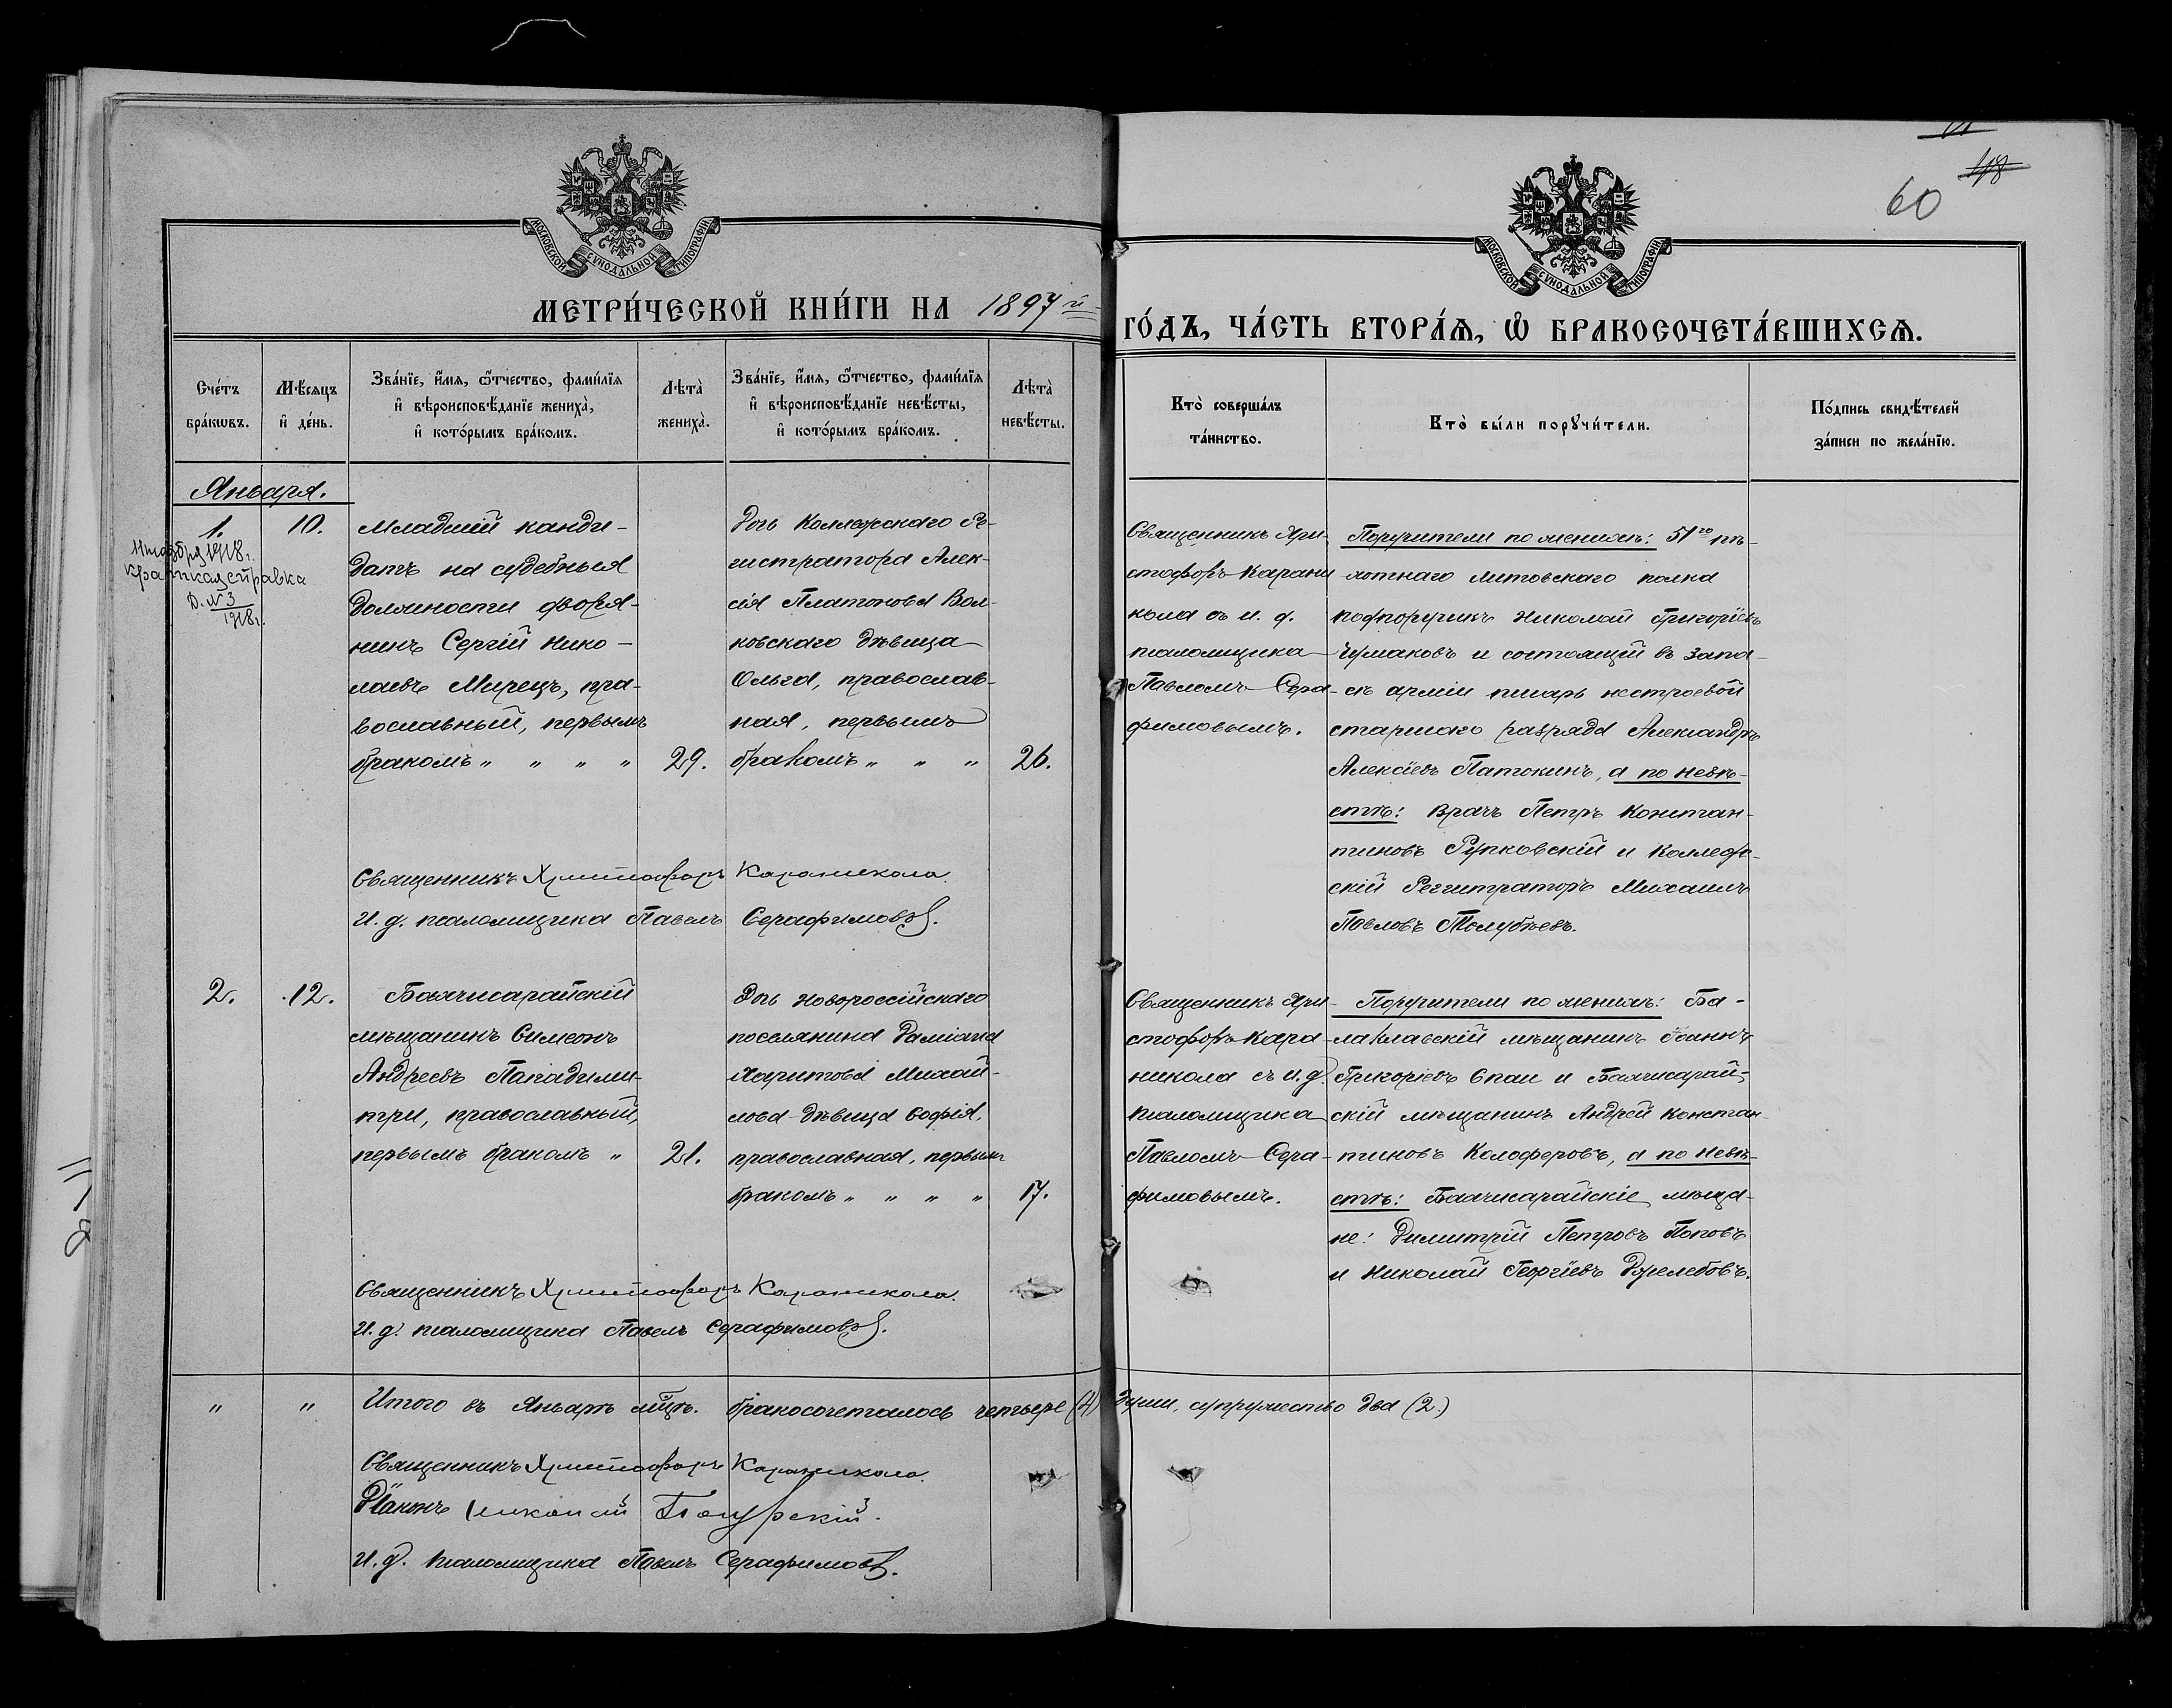 60
48
МОСКОВСКОЙ СУНОДАЛЬНОЙ ТИПОГРАФІИ.
МОСКОВСКОЙ СУНОДАЛЬНОЙ ТИПОГРАФІИ.
МЕТРИ́ЧЕСКОЙ КНИ́ГИ НА 1897й
ГО́ДЪ, ЧА́СТЬ ВТОРА́Ѧ, Ѡ҆ БРАКОСОЧЕТА́ВШИХСѦ.
Сче́тъ
бра́кѡвъ.
Мѣ́сѧцъ
и҆ де́нь.
Зва́нїе, и҆́мѧ, ѻ҆́тчество, фами́лїѧ
и҆ вѣроисповѣ́данїе жениха̀,
и҆ кото́рымъ бра́комъ.
Лѣта̀
жениха̀.
Зва́нїе, и҆́мѧ, ѻ҆́тчество, фами́лїѧ
и҆ вѣроисповѣ́данїе невѣ́сты,
и҆ кото́рымъ бра́комъ.
Лѣта̀
невѣ́сты.
Кто̀ соверша́лъ
та́инство.
Кто̀ бы́ли порꙋчи́тели.
По́дпись свидѣ́телей
за́писи по жела́нїю.
Января.
1.
1918г.
краткая справка
Д. № 3
1918г.
10.
Младшій канди-
датъ на судебныя
должности дворя-
нинъ Сергій Нико-
лаевъ Мирецъ, пра-
вославный, первымъ
бракомъ " " " "
29.
Дочь Коллежскаго Ре-
гистратора Алек-
сія Платонова Вол-
ковскаго дѣвица
Ольга, православ-
ная, первымъ
бракомъ " " "
26.
Священникъ Хри-
стофоръ Карани
кола съ и. д.
псаломщика
Павломъ Сера-
фимовымъ.
Поручители по женихѣ: 51го пѣ-
хотнаго Литовскаго полка
подпоручикъ Николай Григоріевъ
Чумаковъ и состоящій въ запа-
сѣ арміи писарь нестроевой
старшаго разряда Александръ
Алексіевъ Патокинъ, а по невѣ-
стѣ: Врачъ Петръ Констан-
тиновъ Рутковскій и Коллеж-
скій Регистраторъ Михаилъ
Павловъ Голубѣевъ.
Священникъ Христофоръ Караникола.
И. д. псаломщика Павелъ Серафимовъ.
2.
12.
Бахчисарайскій
мѣщанинъ Симеонъ
Андреевъ Пападими-
три, православный,
первымъ бракомъ "
21.
Дочь новороссійскаго
поселянина Даміана
Харитова Михай-
лова дѣвица Софія,
православная, первымъ
бракомъ " " " "
17.
Священникъ Хри-
стофоръ Кара-
никола съ и. д.
псаломщика
Павломъ Сера-
фимовымъ.
Поручители по женихѣ: Ба-
лаклавскій мѣщанинъ Іоаннъ
Григоріевъ Спаи и Бахчисарай-
скій мѣщанинъ Андрей Констан-
тиновъ Колоферовъ, а по невѣ-
стѣ: Бахчисарайскіе мѣща-
не: Димитрій Петровъ Поповъ
и Николай Георгіевъ Джелебовъ.
Священникъ Христофоръ Караникола.
И. д. псаломщика Павелъ Серафимовъ.
" " Итого въ Январѣ мцѣ. бракосочеталось четыре (4) души, супружество два (2.)
Священникъ Христофоръ Караникола.
Діаконъ Николай
И. д. псаломщика Павелъ Серафимовъ.